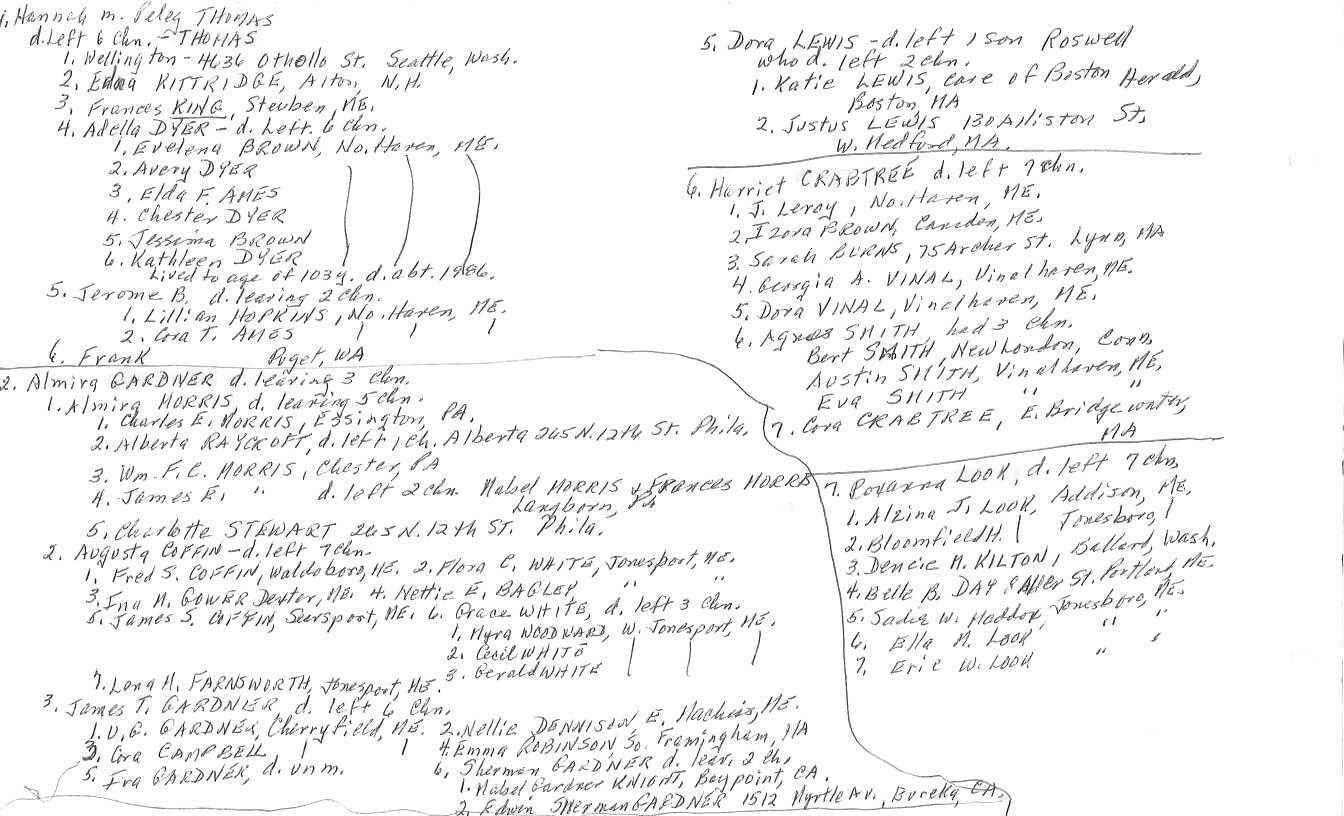 1. Hannah m. Peleg THOMAS
d. Left 6 Chn. - THOMAS
1. Wellington - 4636 Othello St. Seattle, Wash.
2. Edna KITTRIDGE, Alton, N.H.
3. Frances KING, Steuben, ME.
4. Adella DYER - d. Left. 6 Chn.
1. Evelena BROWN, No. Haven, ME.
2. Avery DYER
3. Elda F. AMES
4. Chester DYER
5. Jessima BROWN
6. Kathleen DYER
Lived to age of 103 y. d. abt. 1986.
5. Jerome B. d. leaving 2 chn.
1. Lillian HOPKINS, No. Haven, ME.
2. Cora T. AMES
6. Frank Puget, WA
2. Almira GARDNER d. leaving 3 chn.
1. Almira MORRIS d. leaving 5 chn.
1. Charles E. MORRIS, Essington, PA.
2. Alberta RAYCROFT, d. left 1 ch. Alberta 265 N. 12th St. Phila.
3. Wm. F. C. MORRIS, Chester, PA
4. James E. " d. left 2 chn. Mabel MORRIS & Frances MORRIS
Langborn, PA
5. Charlotte STEWART 265 N. 12th ST. Phila.
2. Augusta COFFIN - d. left 7 chn.
1. Fred S. COFFIN, Waldoboro, ME. 2. Flora C. WHITE, Jonesport, ME.
3. Ina M. GOWER Dexter, ME. 4. Nettie E. BAGLEY " "
5. James S. COFFIN, Searsport, ME. 6. Grace WHITE, d. left 3 chn.
1. Myra WOODWARD, W. Jonesport, ME.
2. Cecil WHITE
3. Gerald WHITE
7. Lona H. FARNSWORTH, Jonesport, ME.
3. James T. GARDNER d. left 6 chn.
1. U. G. GARDNER, Cherryfield, ME. 2. Nellie DENNISON E. Machias, ME.
3. Cora CAMPBELL 4. Emma ROBINSON, So. Framingham, MA
5. Ira GARDNER, d. unm. 6. Sherman GARDNER d. leav. 2 ch.
1. Mabel Gardner KNIGHT, Baypoint, CA.
2. Edwin Sherman GARDNER 1512 Myrtle Av., Eureka, CA.
5. Dora LEWIS - d. left 1 son Roswell
who d. left 2 chn.
1. Katie LEWIS, care of Boston Herald,
Boston, MA
2. Justus LEWIS 130 Allston St,
W. Medford, MA.
6. Harriet CRABTREE d. left 7 chn.
1. J. Leroy, No. Haven, ME.
2. Izora BROWN, Camden, ME.
3. Sarah BURNS, 75 Archer St. Lynn, MA
4. Georgia A. VINAL, Vinalhaven, ME.
5. Dora VINAL, Vinalhaven, ME.
6. Agnes SMITH had 3 chn.
Bert SMITH, New London, Conn,
Austin SMITH, Vinalhaven, ME,
Eva SMITH " "
7. Cora CRABTREE, E. Bridgewater,
MA
7. Roxanna LOOK, d. left 7 chn,
1. Alzina J. LOOK, Addison, ME.
2. Bloomfield H. Jonesboro,
3. Dencie M. KILTON, Ballard, Wash.
4. Belle B. DAY St. Portland, ME.
5. Sadie W. Maddox, Jonesboro, ME.
6. Ella M. LOOK " "
7. Eric W. LOOK " "